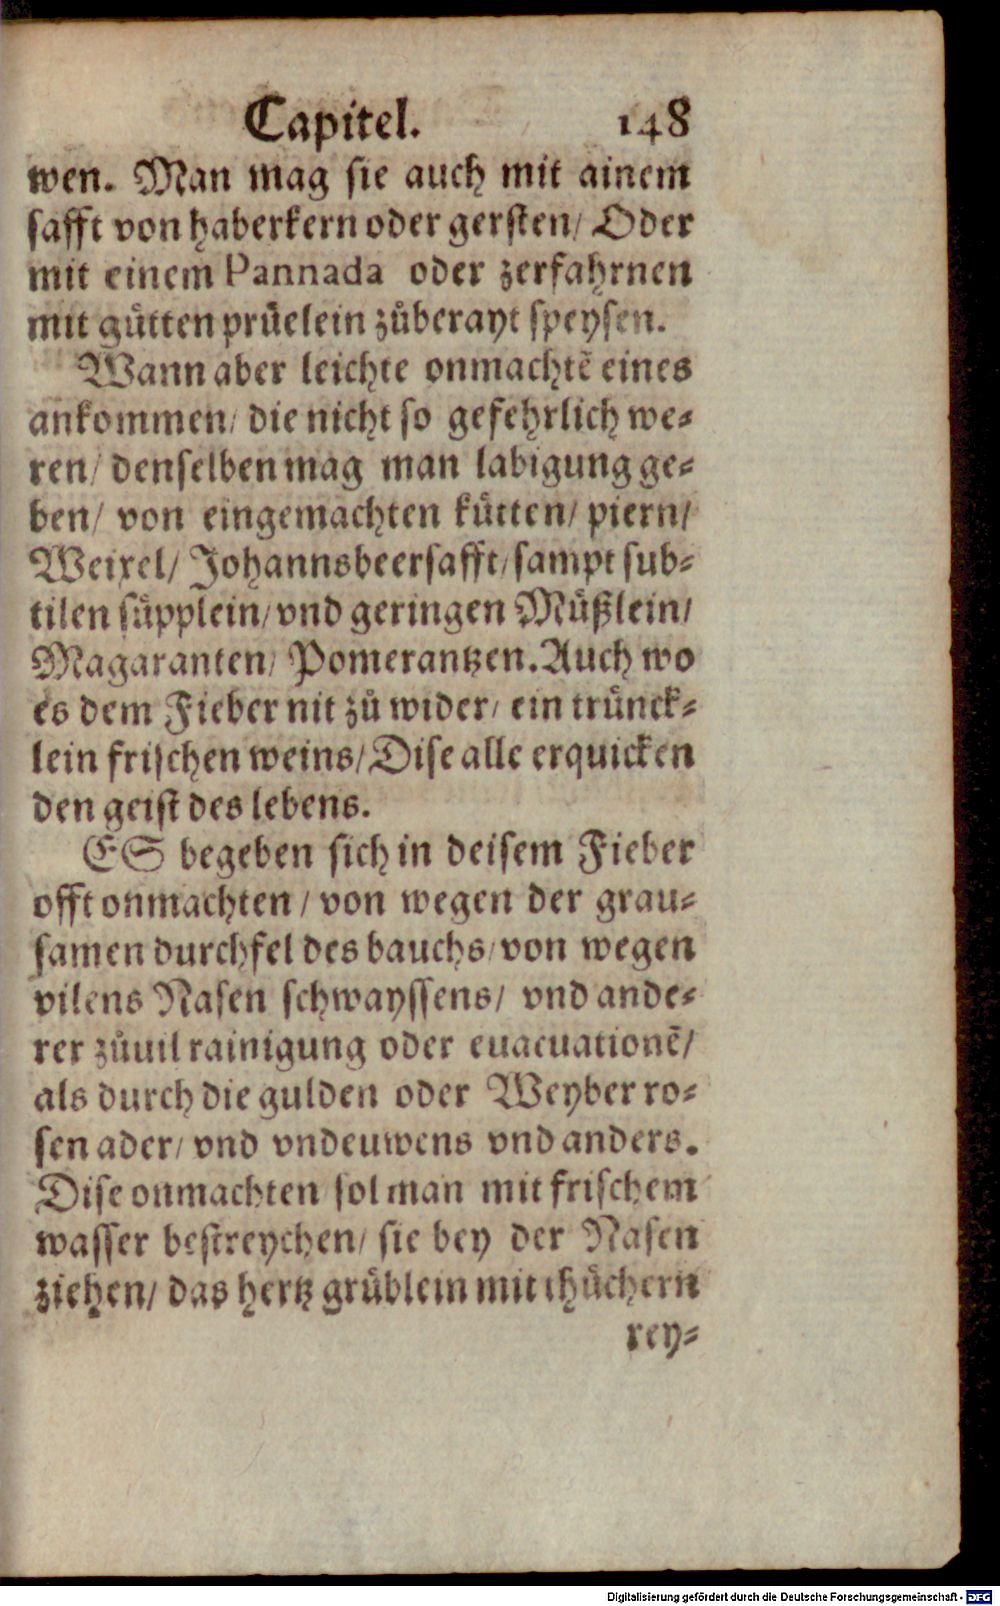 Capitel. 148
wen. Man mag sie auch mit ainem
safft von haberkern oder gersten/ Oder
mit einem Pannada oder zerfahrnen
mit gůtten prüelein zůberayt speysen.
Wann aber leichte onmachtẽ eines
ankommen/ die nicht so gefehrlich we⸗
ren/ denselben mag man labigung ge⸗
ben/ von eingemachten kütten/ piern/
Weixel/ Johannsbeersafft/ sampt sub⸗
tilen süpplein/ vnd geringen Müßlein/
Magaranten/ Pomerantzen. Auch wo
es dem Fieber nit zů wider/ ein trünck⸗
lein frischen weins/ Dise alle erquicken
den geist des lebens.
ES begeben sich in deisem Fieber
offt onmachten/ von wegen der grau⸗
samen durchfel des bauchs/ von wegen
vilens Nasen schwayssens/ vnd ande⸗
rer zůuil rainigung oder euacuationẽ/
als durch die gulden oder Weyber ro⸗
sen ader/ vnd vndeuwens vnd anders.
Dise onmachten sol man mit frischem
wasser bestreychen/ sie bey der Nasen
ziehen/ das hertz grüblein mit thüchern
rey⸗
Digitalisierung gefördert durch die Deutsche Forschungsgemeinschaft - DFG